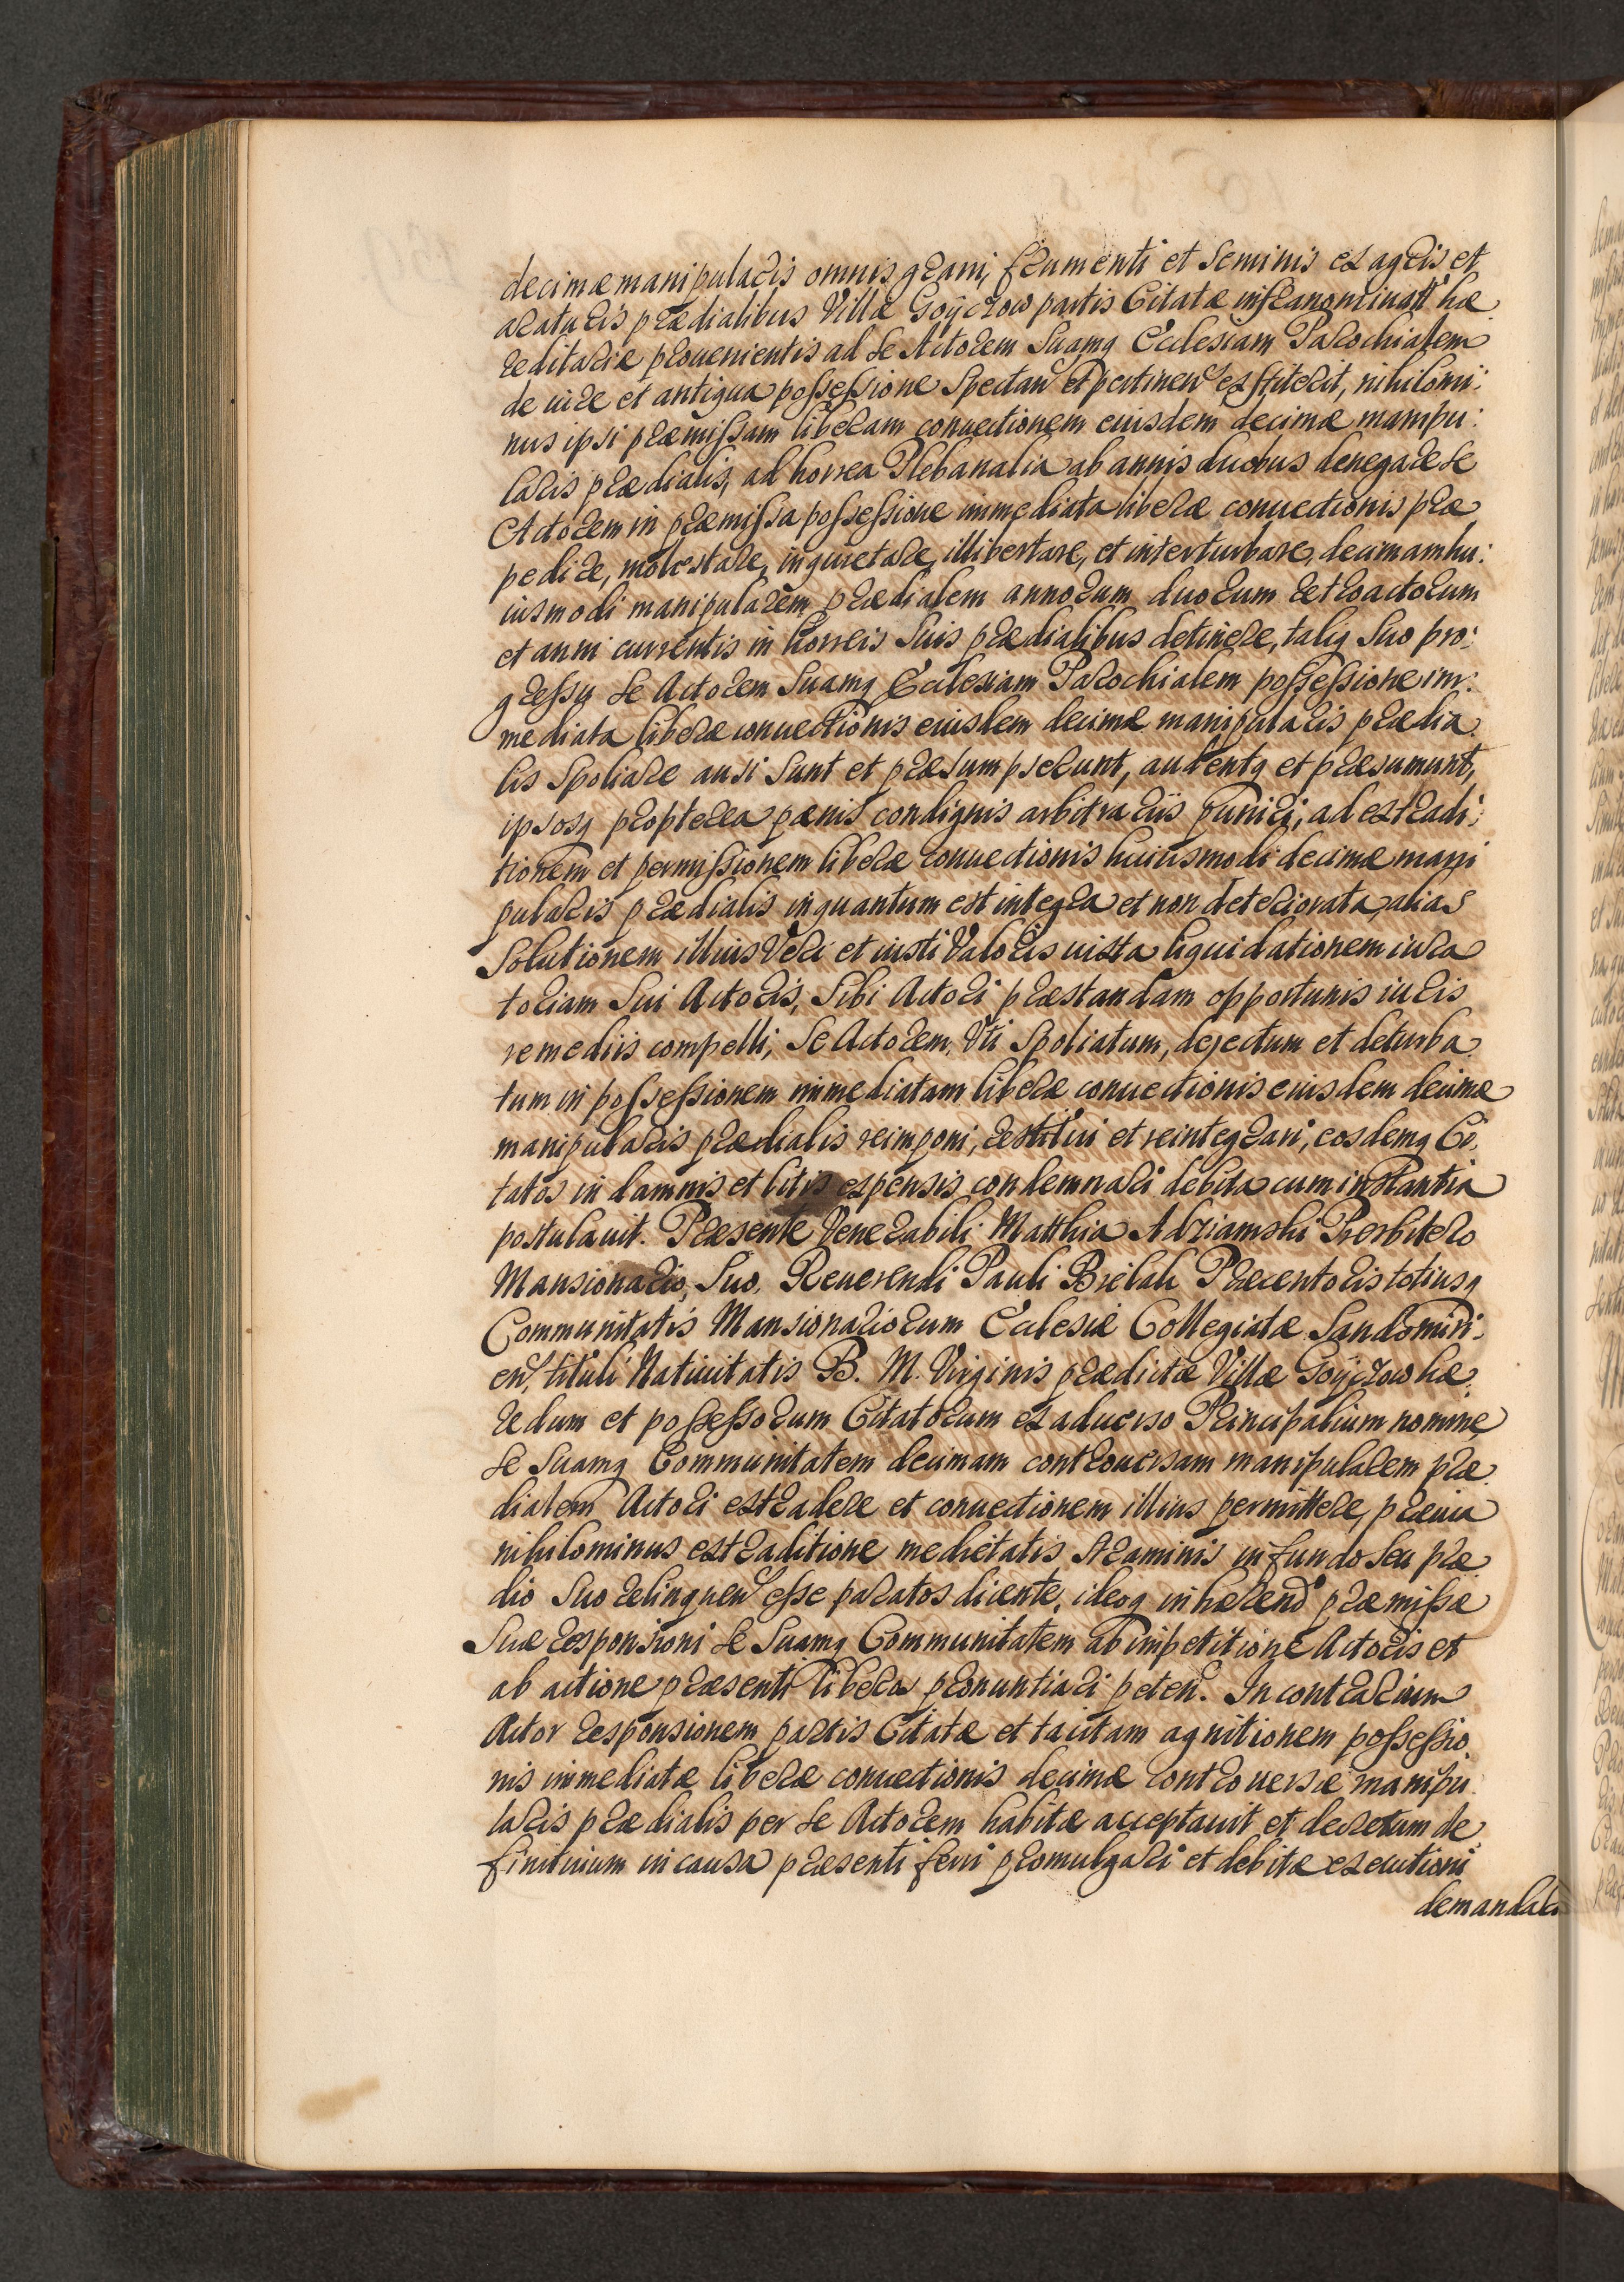 decimæ manipularis omnis grani, frumenti et seminis ex agris et
araturis prædialibus Villæ Goÿczow partis Citatæ infranominatt hæ
reditariæ prouenientis ad se Actorem Suamq Ecclesiam Parochialem
de iure et antiqua possessione Spectan et pertinen exstiterit, nihilomi:
nus ipsi præmissam liberam conuectionem eiusdem decimæ manipu:
laris prædialis, ad horrea Plebanalia ab annis duobus denegare se
Actorem in præmissa possessione immediata liberæ conuectionis præ
pedire, molestare, inquietare, illibertare, et interturbare, decimam hu:
iusmodi manipularem prædialem annorum duorum retroactorum
et anni currentis in horreis Suis prædialibus detinere, taliq Suo pro:
gressu se Actorem Suamq Ecclesiam Parochialem possessione im:
mediata liberæ conuectionis eiusdem decimæ manipularis prædia
lis Spoliare ausi Sunt et præsumpserunt, audentq et præsumunt,
ipsosq propterea pænis condignis arbitrariis puniri, ad extradi:
tionem et permissionem liberæ conuectionis huiusmodi decimæ mani
pularis prædialis inquantum est integra et non deteriorata, alias
Solutionem illius Veri et iusti Valoris iuxta liquidationem iura
toriam Sui Actoris, Sibi Actori præstandam opportunis iuris
remediis compelli, Se Actorem, Vti Spoliatum, dejectum et deturba
tum in possessionem immediatam liberæ conuectionis eiusdem decimæ
manipularis prædialis reimponi, restitui et reintegrari, eosdemq Ci
tatos in damnis et litis expensis condemnari debita cum instantia
postulauit. Præsente Venerabili Matthia Adziamski Presbitero
Mansionario, Suo, Reuerendi Pauli Bielak Præcentoris totiusq
Communitatis Mansionariorum Ecclesiæ Collegiatæ Sandomiri:
en, tituli Natiuitatis B. M. Virginis prædictæ Villæ Goÿczow hæ
redum et possessorum Citatorum ex aduerso Principalium nomine
se Suamq Communitatem decimam controuersam manipularem præ
dialem Actori extradere et conuectionem illius permittere, præuia
nihilominus extraditione medietatis straminis in fundo seu præ
dio Suo relinquen esse paratos dicente, ideoq inhærend præmissæ
Suæ responsioni se Suamq Communitatem ab impetitione Actoris et
ab actione præsenti libera pronuntiari peten. In contrarium
Actor responsionem partis Citatæ et tacitam agnitionem possessio
nis immediatæ liberæ conuectionis decimæ controuersæ manipu
laris prædialis per se Actorem habitæ acceptauit et decretum de
finitiuum in causa præsenti ferri promulgari et debitæ executioni
demandari